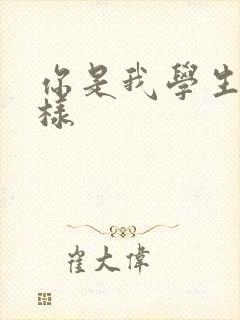 你是我學生
樣
崔大偉